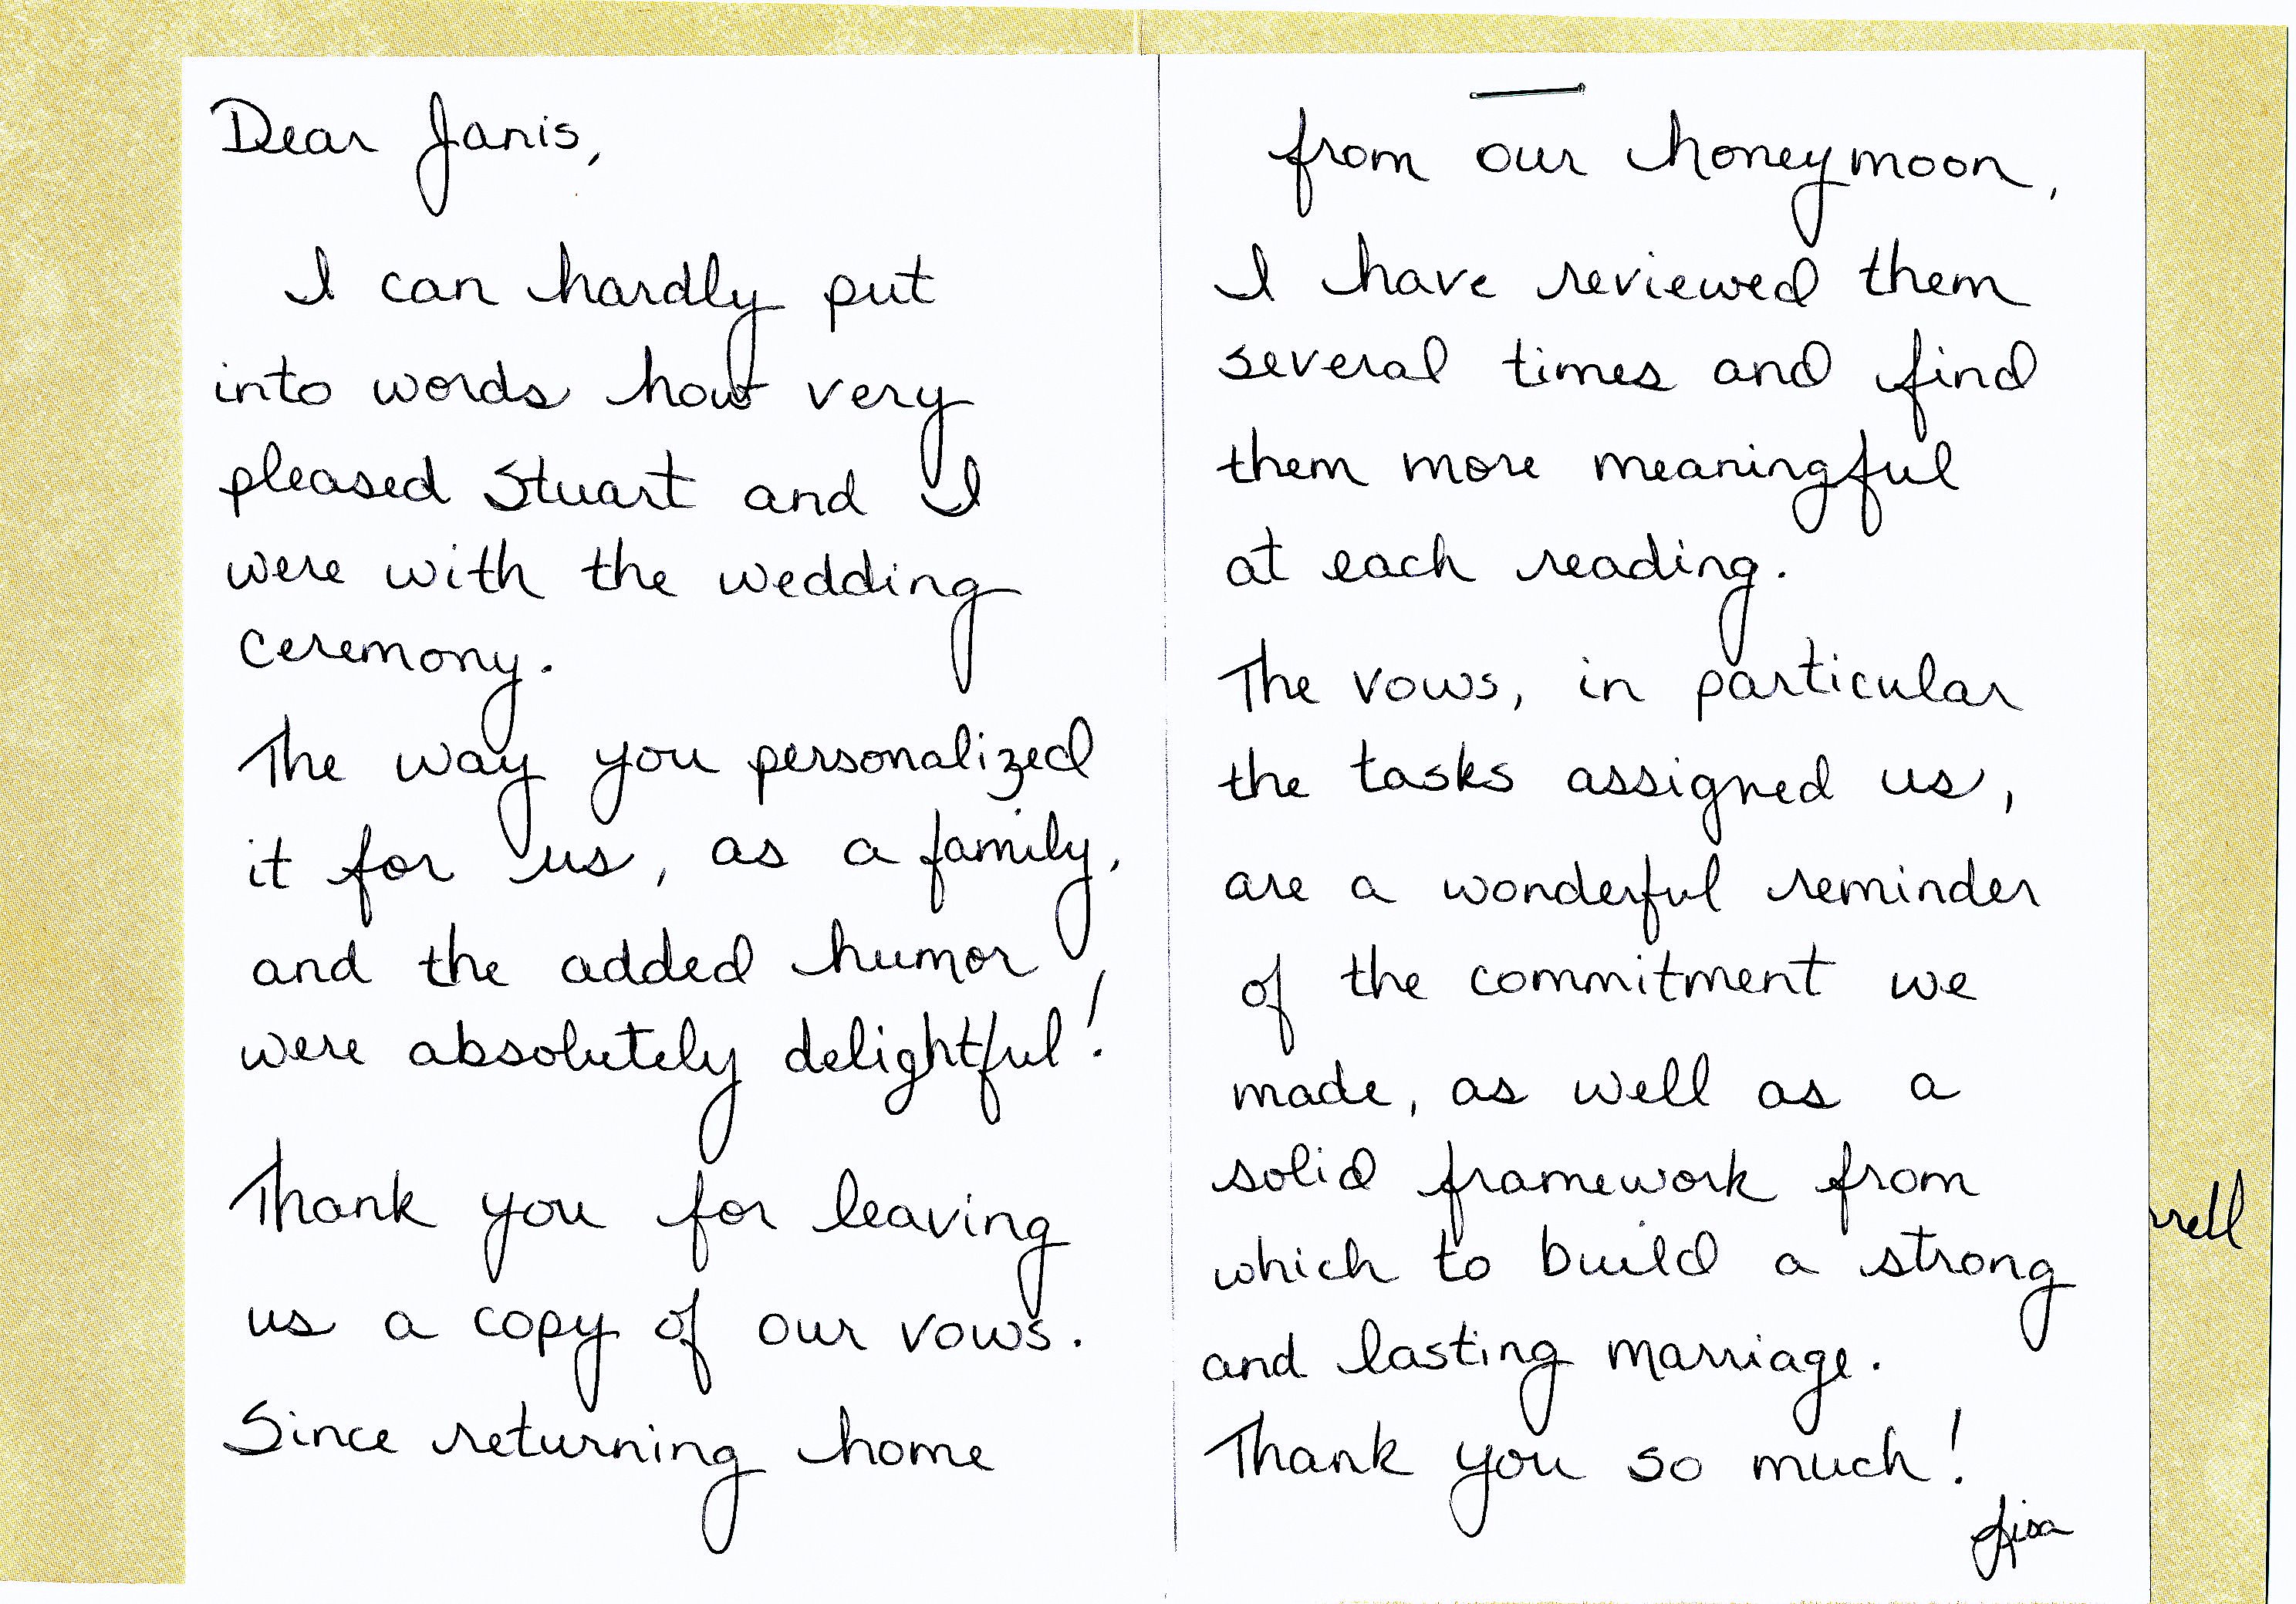 Dear Janis,
I can hardly put
into words how very
pleased Stuart and I
were with the wedding
ceremony.
The way you personalized
it for us, as a family,
and the added humor
were absolutely delightful!
Thank you for leaving
us a copy of our vows.
Since returning home
from our honeymoon,
I have reviewed them
several times and find
them more meaningful
at each reading.
The vows, in particular
the tasks assigned us,
are a wonderful reminder
of the commitment we
made, as well as a
solid framework from
which to build a strong
and lasting marriage.
Thank you so much!
Lisa